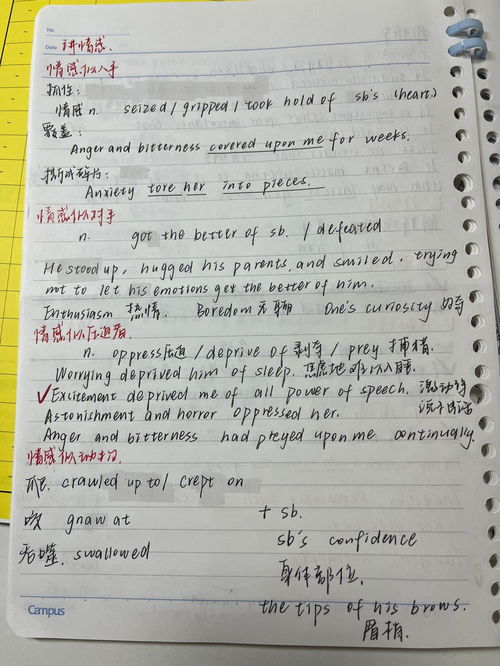 No.
Date 主讲情感.
情感拟人手
抓住:
情感 n. seized / gripped / took hold of sb's (heart.)
覆盖:
Anger and bitterness covered upon me for weeks.
撕成碎片:
Anxiety tore her into pieces.
情感拟对手
n. got the better of sb. / defeated
He stood up, hugged his parents, and smiled, trying
not to let his emotions get the better of him.
Enthusiasm 热情. Boredom 无聊 One's curiosity 好奇
情感拟压迫者
n. oppress压迫 / deprive of 剥夺 / prey 捕猎.
Worrying deprived him of sleep. 焦虑地难以入睡.
✓ Excitement deprived me of all power of speech. 激动得
Astonishment and horror oppressed her. 说不出话
Anger and bitterness had preyed upon me continually.
情感拟动物
爬. crawled up to / crept on
咬 gnaw at + sb.
吞噬. swallowed sb's confidence
身体部位.
the tips of his brows.
眉梢.
Campus